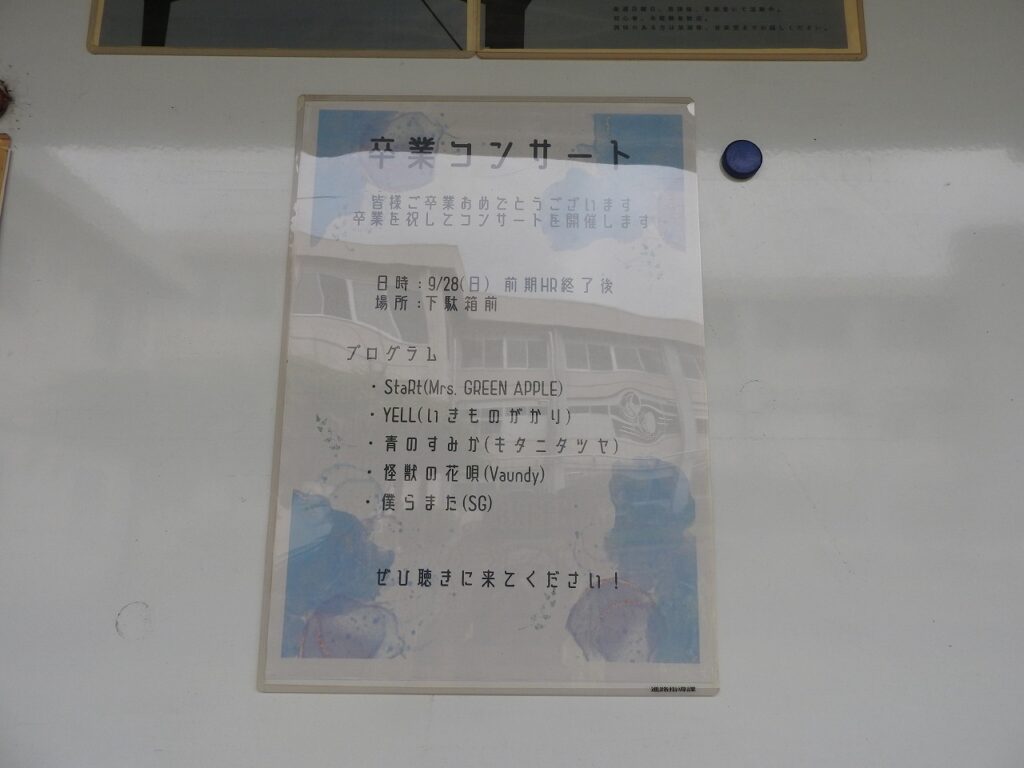 初心者、未経験も歓迎。
卒業コンサート
皆様ご卒業おめでとうございます
卒業を祝してコンサートを開催します
日時:9/28(日) 前期HR終了後
場所:下駄箱前
プログラム
・StaRt(Mrs. GREEN APPLE)
・YELL(いきものがかり)
・青のすみか(キタニタツヤ)
・怪獣の花唄(Vaundy)
・僕らまた(SG)
ぜひ聴きに来てください!
進路指導課